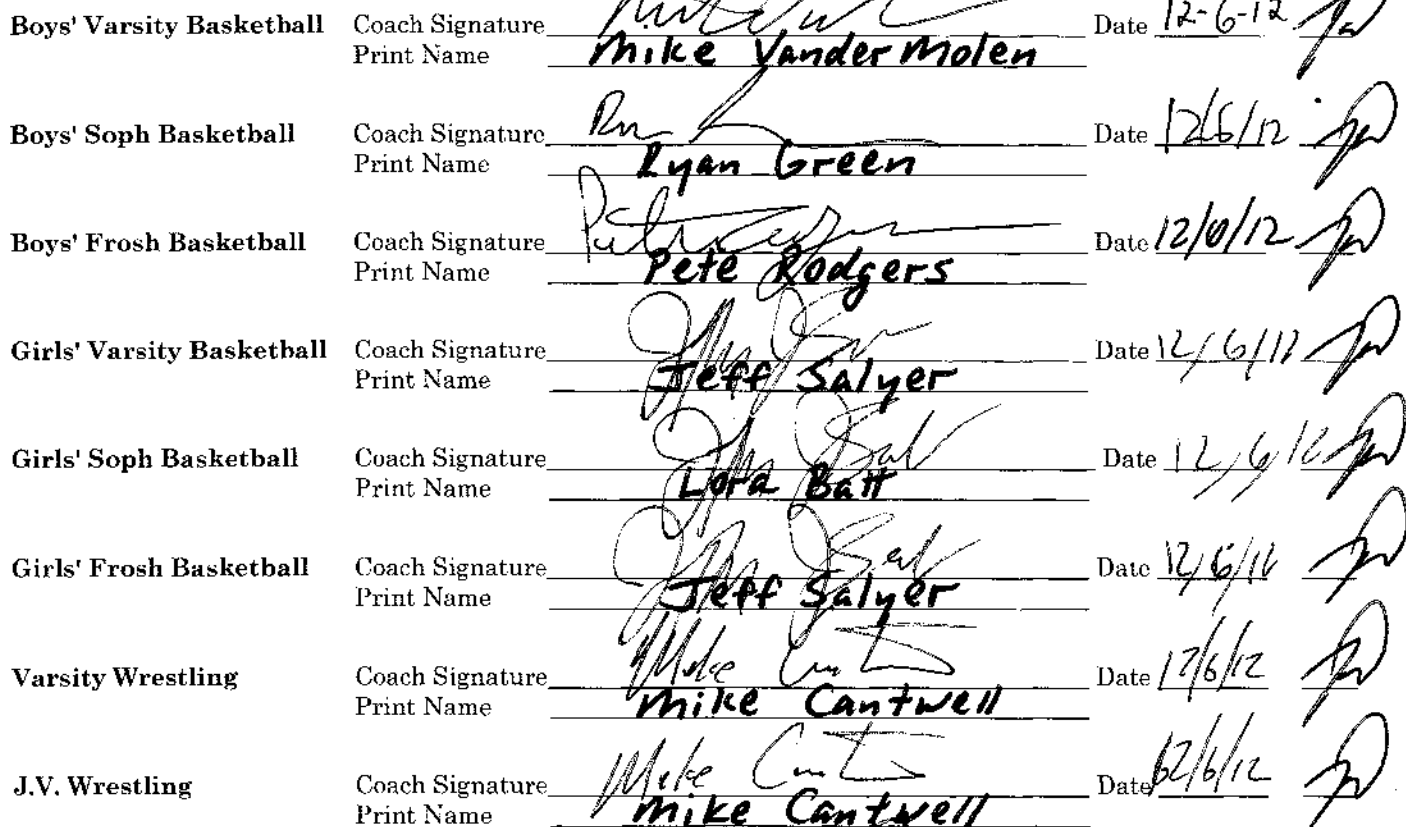 Boys' Varsity Basketball Coach Signature Date 12-6-12
Print Name Mike Vander Molen
Boys' Soph Basketball Coach Signature Date 12/6/12
Print Name Ryan Green
Boys' Frosh Basketball Coach Signature Date 12/6/12
Print Name Pete Rodgers
Girls' Varsity Basketball Coach Signature Date 12/6/12
Print Name Jeff Salyer
Girls' Soph Basketball Coach Signature Date 12/6/12
Print Name Lora Batt
Girls' Frosh Basketball Coach Signature Date 12/6/12
Print Name Jeff Salyer
Varsity Wrestling Coach Signature Mike Date 12/6/12
Print Name Mike Cantwell
J.V. Wrestling Coach Signature Mike Date 12/6/12
Print Name Mike Cantwell